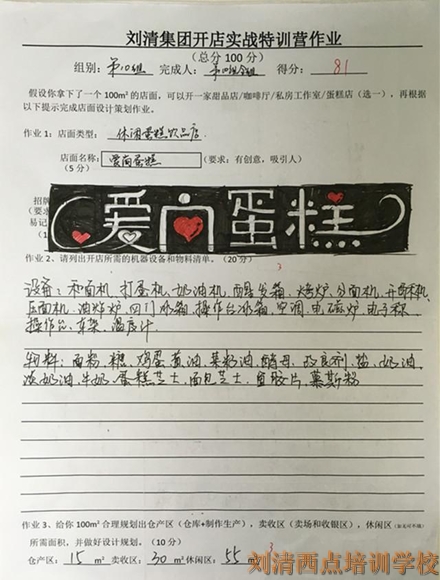 刘清集团开店实战特训营作业
(总分 100 分)
组别: 第10组 完成人: 第10组全组 得分: 81
假设你拿下了一个 100m² 的店面,可以开一家甜品店/咖啡厅/私房工作室/蛋糕店(选一),再根
据以下提示完成店面设计策划作业。
作业 1: 店面类型: 休闲蛋糕饮品店
店面名称: 爱尚蛋糕 (要求: 有创意,吸引人)
(5 分)
招牌
(要求
易记
爱尚蛋糕
作业 2、请列出开店所需的机器设备和物料清单。(20 分)
3
设备: 和面机、打蛋机、奶油机、醒发箱、烤炉、分面机、开酥机
压面机、油炸炉、四门冰箱、操作台冰箱、空调、电磁炉、电子称
操作台、车架、温度计.
物料: 面粉、糖、鸡蛋、黄油、菜籽油、酵母、改良剂、盐、奶油
淡奶油、牛奶、蛋糕芝士、面包芝士、鱼胶片、慕斯粉
作业 3、给你 100m² 合理规划出仓产区(仓库+制作生产),卖收区(卖场和收银区),休闲区
所需面积,并做好设计规划。(10 分)
仓产区: 15 m² 卖收区: 30 m² 休闲区: 55 m² 3
刘清西点培训学校